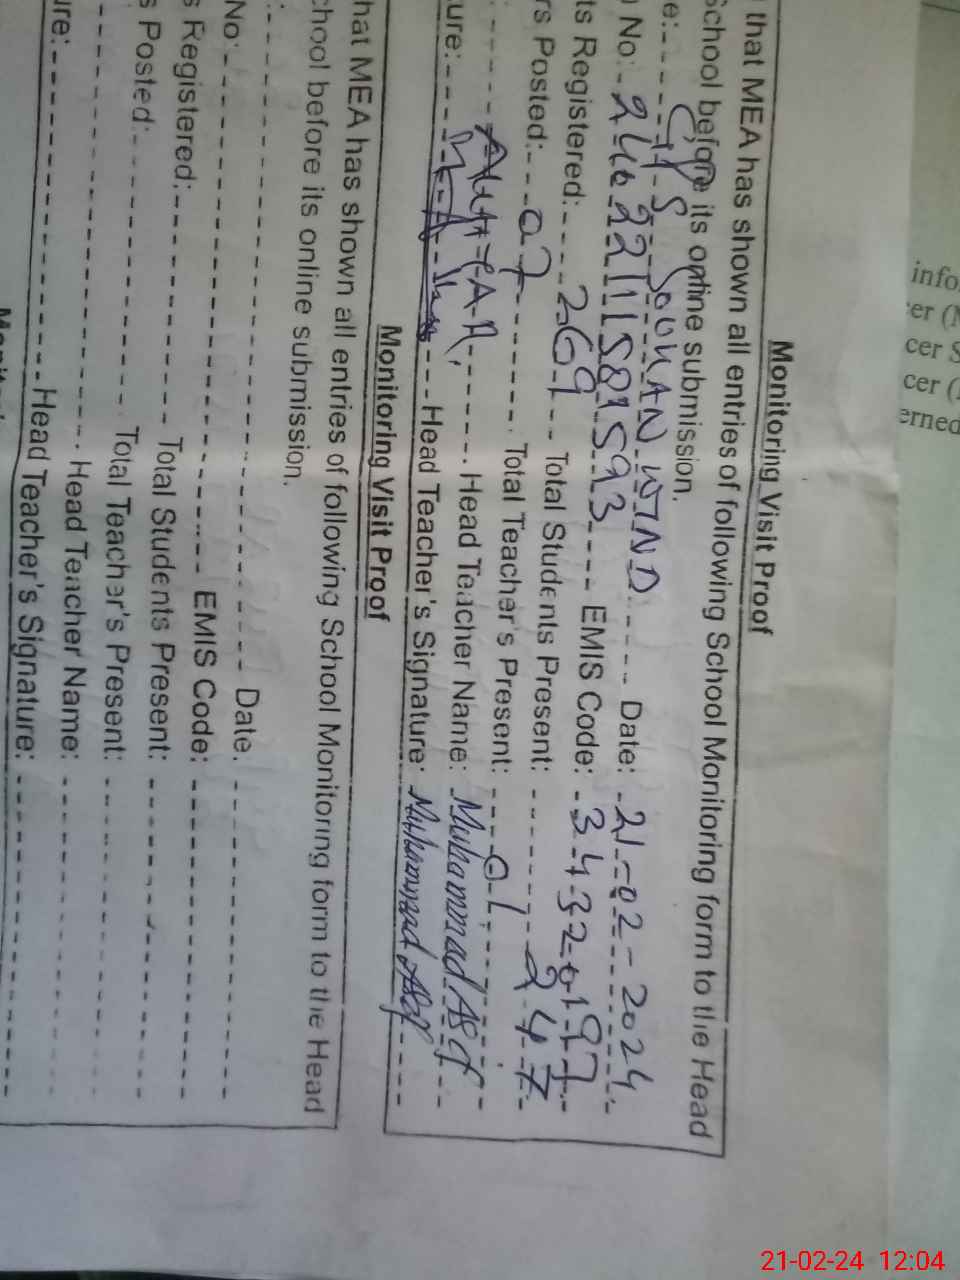 Monitoring Visit Proof
that MEA has shown all entries of following School Monitoring form to the Head
School before its online submission.
e: GPS SOUHAN WIND Date: 21-02-2024
No: 246221158 593 EMIS Code: 3 4 3 2 0 1 9 7
ts Registered: 269 Total Students Present: 247
rs Posted: 07 Total Teacher's Present: 01
Head Teacher Name: Muhammad
ure: Head Teacher's Signature: Muhammad
Monitoring Visit Proof
hat MEA has shown all entries of following School Monitoring form to the Head
chool before its online submission.
: Date:
No: EMIS Code:
s Registered: Total Students Present:
s Posted: Total Teacher's Present:
Head Teacher Name:
ure: Head Teacher's Signature:
info
er (
cer S
cer (
erned
21-02-24 12:04